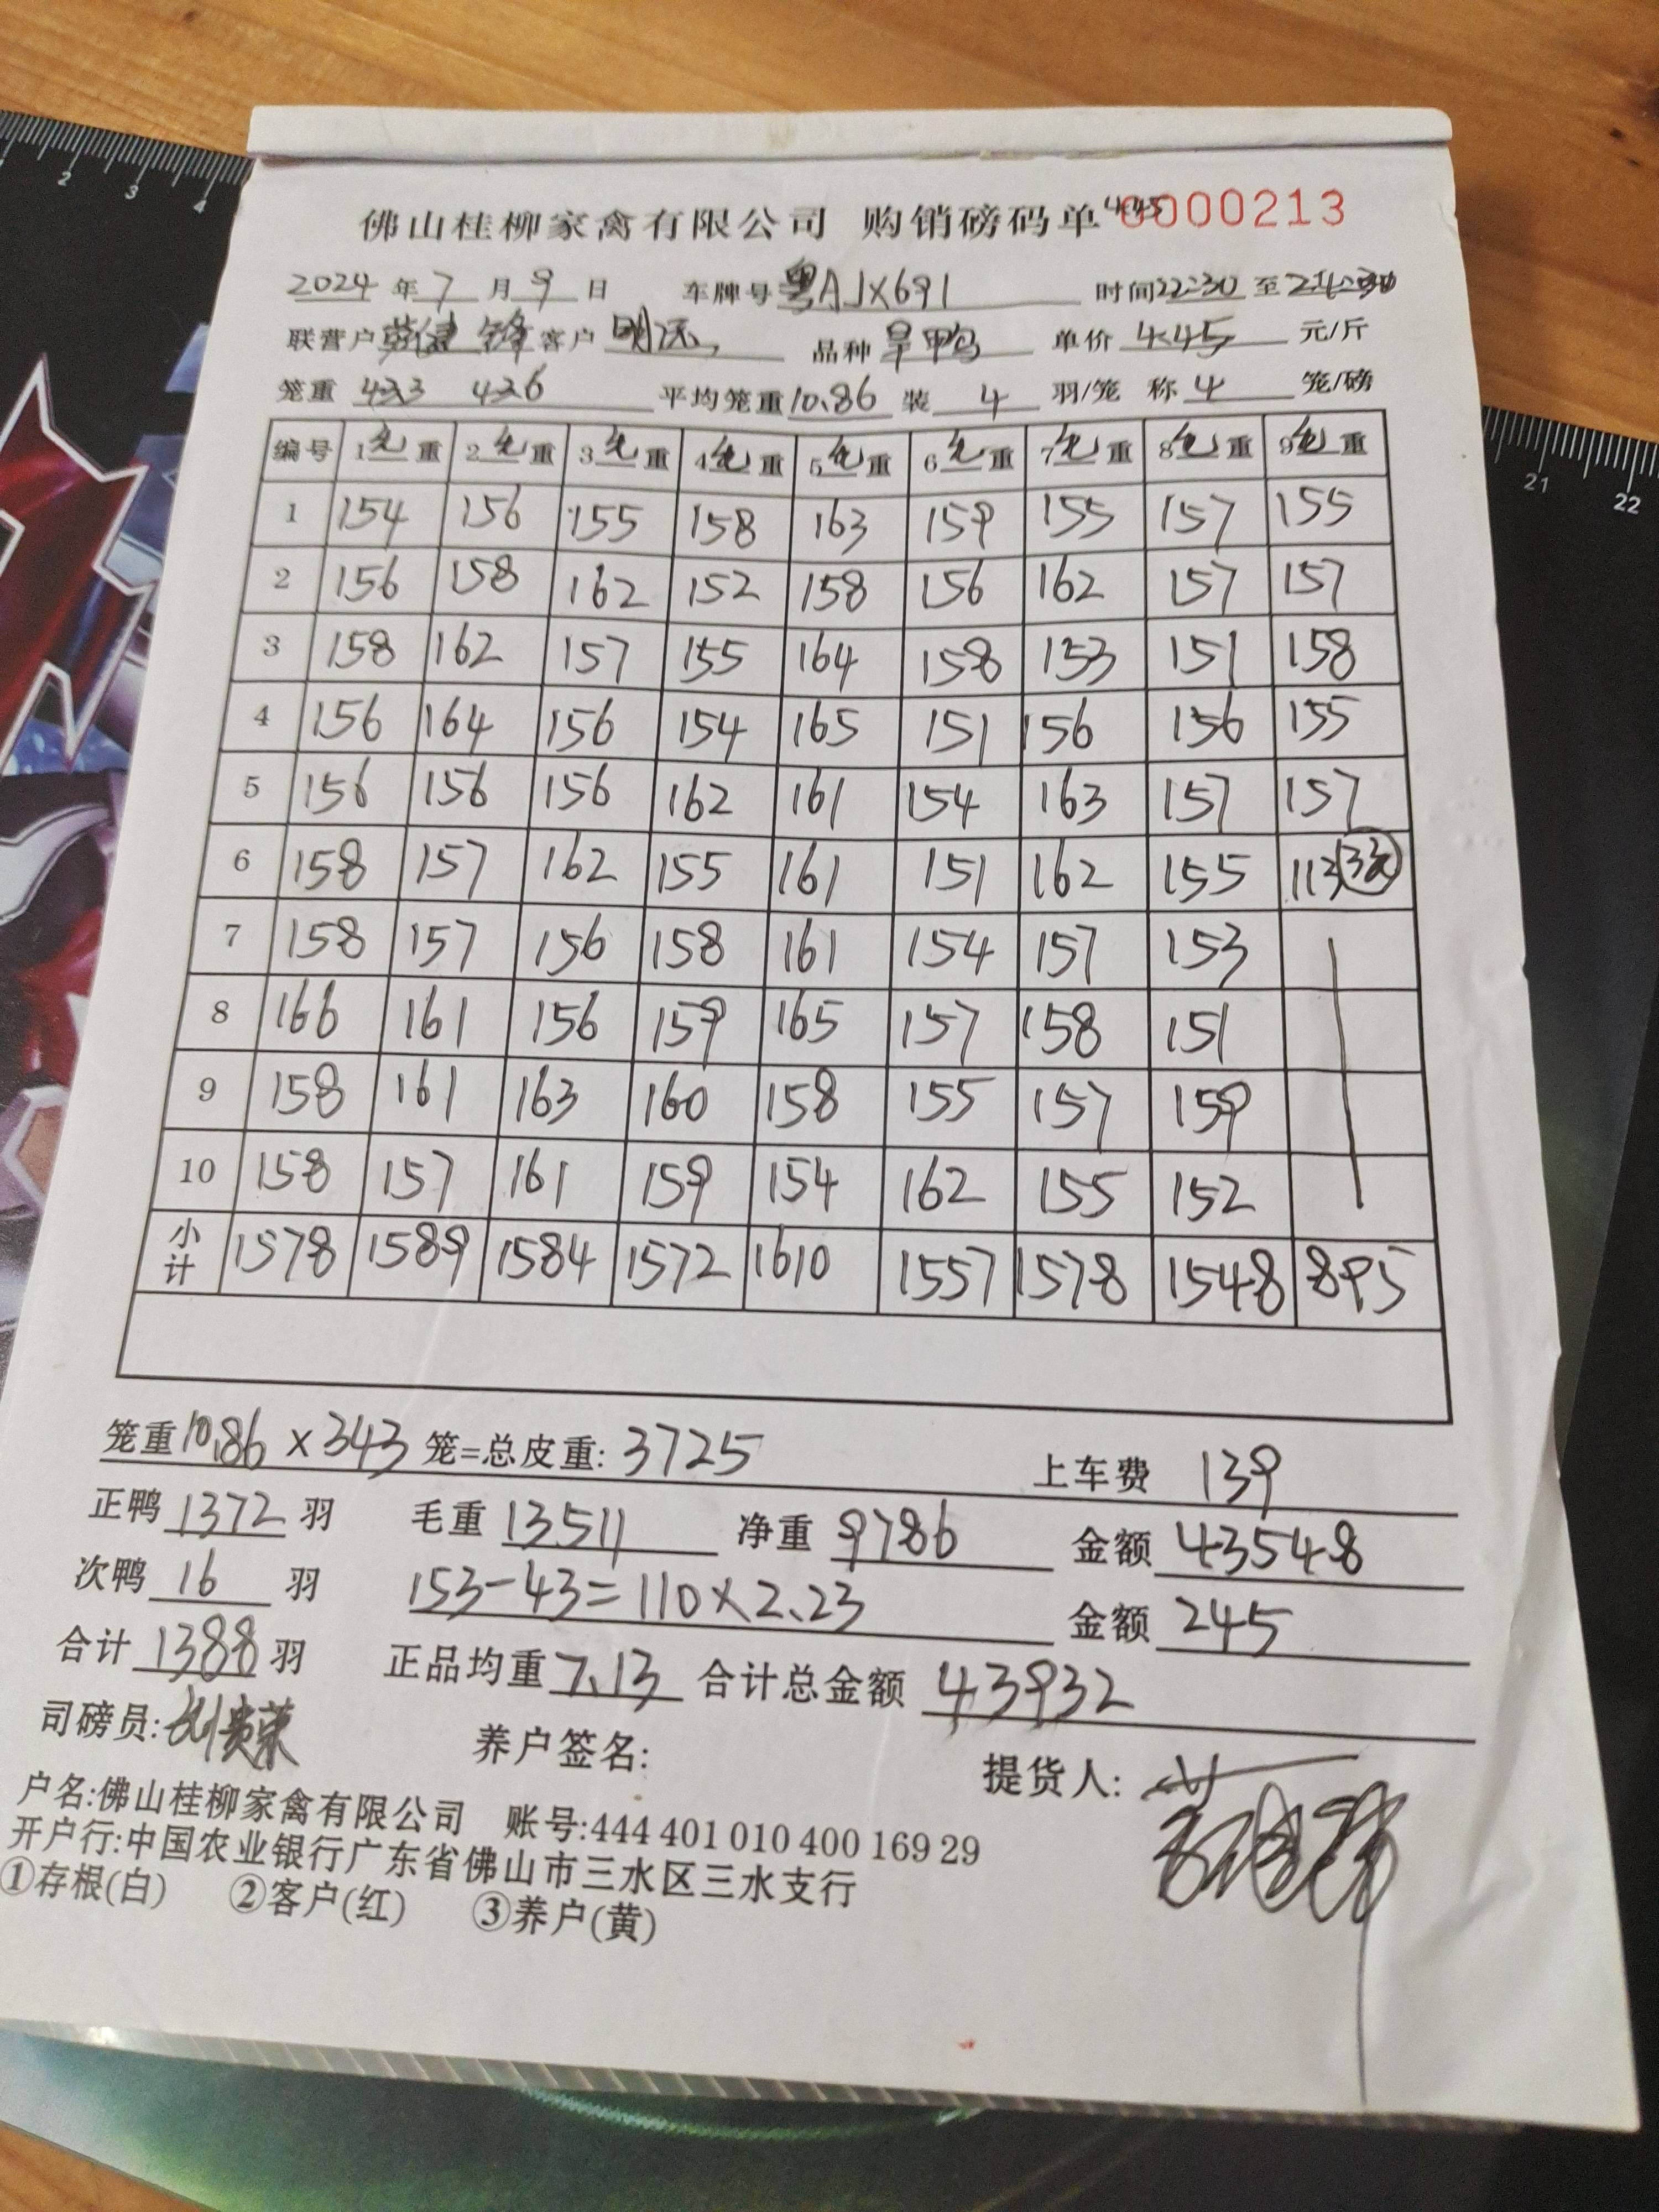 佛山桂柳家禽有限公司 购销磅码单 445 0000213
2024 年 7 月 9 日 车牌号 粤AJX691 时间 22:30 至
联营户 锋 客户 明 品种 旱鸭 单价 4.45 元/斤
笼重 433 436 平均笼重 10.86 装 4 羽/笼 称 4 笼/磅
编号 1毛重 2毛重 3毛重 4毛重 5毛重 6毛重 7毛重 8毛重 9毛重
1 154 156 155 158 163 159 155 157 155
2 156 158 162 152 158 156 162 157 157
3 158 162 157 155 164 158 153 151 158
4 156 164 156 154 165 151 156 156 155
5 156 156 156 162 161 154 163 157 157
6 158 157 162 155 161 151 162 155 113
7 158 157 156 158 161 154 157 153
8 166 161 156 159 165 157 158 151
9 158 161 163 160 158 155 157 159
10 158 157 161 159 154 162 155 152
小计 1578 1589 1584 1572 1610 1557 1578 1548 895
笼重 10.86 × 343 笼=总皮重: 3725 上车费 139
正鸭 1372 羽 毛重 13511 净重 9786 金额 43548
次鸭 16 羽 153-43=110×2.23 金额 245
合计 1388 羽 正品均重 7.13 合计总金额 43932
司磅员: 养户签名: 提货人:
户名:佛山桂柳家禽有限公司 账号:444 401 010 400 169 29
开户行:中国农业银行广东省佛山市三水区三水支行
①存根(白) ②客户(红) ③养户(黄)